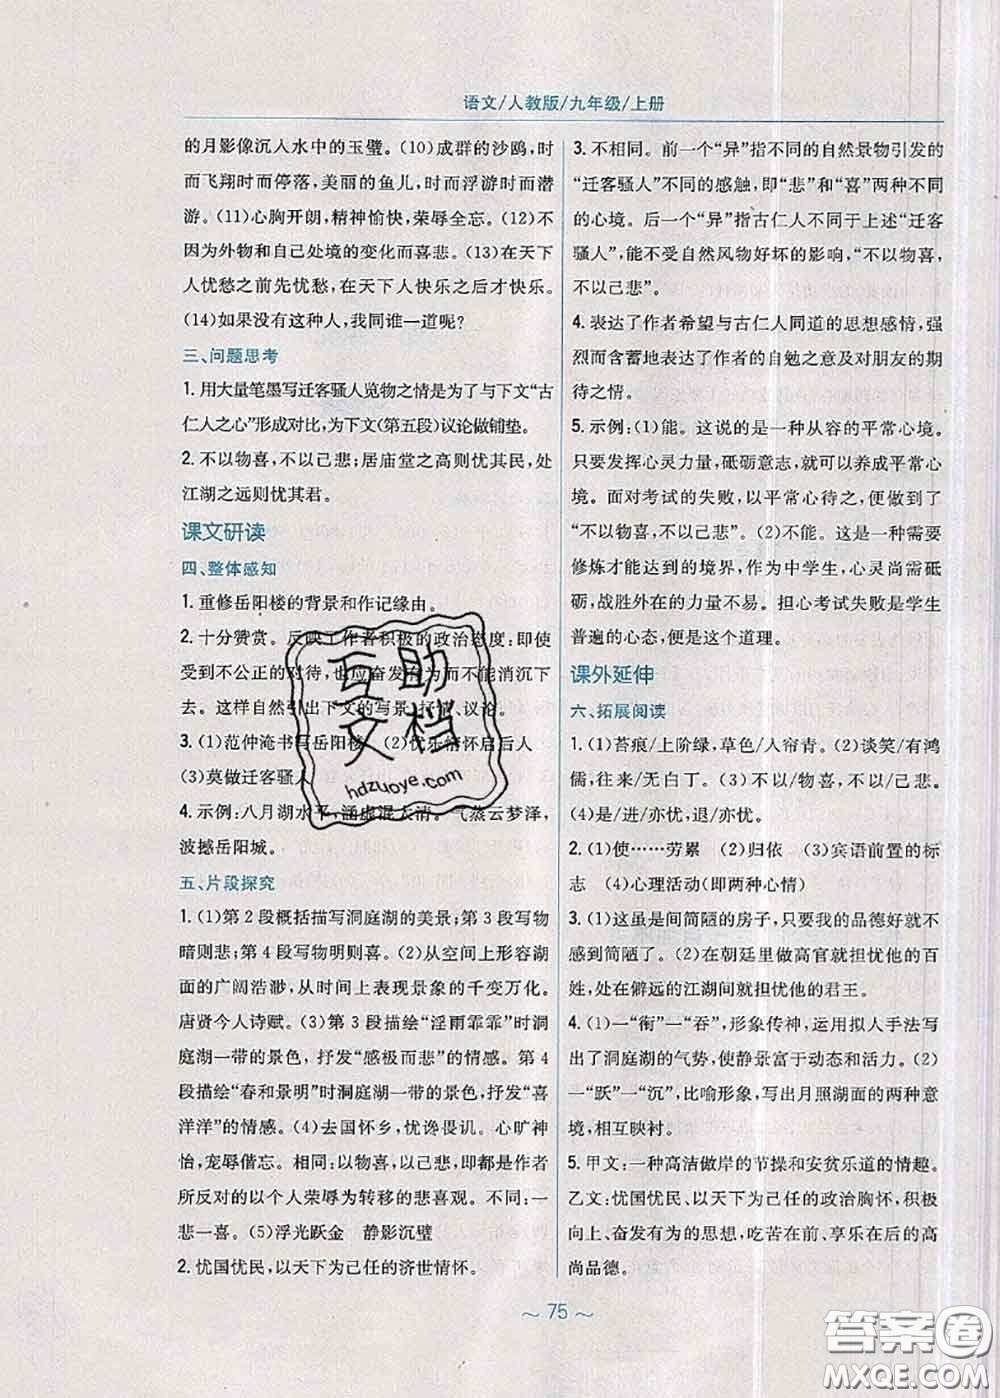 语文/人教版/九年级/上册
的月影像沉入水中的玉璧。(10)成群的沙鸥,时
而飞翔时而停落,美丽的鱼儿,时而浮游时而潜
游。(11)心胸开朗,精神愉快,荣辱全忘。(12)不
因为外物和自己处境的变化而喜悲。(13)在天下
人忧愁之前先忧愁,在天下人快乐之后才快乐。
(14)如果没有这种人,我同谁一道呢?
三、问题思考
1. 用大量笔墨写迁客骚人览物之情是为了与下文“古
仁人之心”形成对比,为下文(第五段)议论做铺垫。
2. 不以物喜,不以己悲;居庙堂之高则忧其民,处
江湖之远则忧其君。
课文研读
四、整体感知
1. 重修岳阳楼的背景和作记缘由。
2. 十分赞赏。反映了作者积极的政治态度:即使
受到不公正的对待,也应奋发有为而不能消沉下
去。这样自然引出下文的写景、抒情、议论。
3. (1)范仲淹书写岳阳楼 (2)忧乐情怀启后人
(3)莫做迁客骚人
4. 示例:八月湖水平,涵虚混太清。气蒸云梦泽,
波撼岳阳城。
五、片段探究
1. (1)第 2 段概括描写洞庭湖的美景;第 3 段写物
暗则悲;第 4 段写物明则喜。(2)从空间上形容湖
面的广阔浩渺,从时间上表现景象的千变万化。
唐贤今人诗赋。(3)第 3 段描绘“淫雨霏霏”时洞
庭湖一带的景色,抒发“感极而悲”的情感。第 4
段描绘“春和景明”时洞庭湖一带的景色,抒发“喜
洋洋”的情感。(4)去国怀乡,忧谗畏讥。心旷神
怡,宠辱偕忘。相同:以物喜,以己悲,即都是作者
所反对的以个人荣辱为转移的悲喜观。不同:一
悲一喜。(5)浮光跃金 静影沉璧
2. 忧国忧民,以天下为己任的济世情怀。
3. 不相同。前一个“异”指不同的自然景物引发的
“迁客骚人”不同的感触,即“悲”和“喜”两种不同
的心境。后一个“异”指古仁人不同于上述“迁客
骚人”,能不受自然风物好坏的影响,“不以物喜,
不以己悲”。
4. 表达了作者希望与古仁人同道的思想感情,强
烈而含蓄地表达了作者的自勉之意及对朋友的期
待之情。
5. 示例:(1)能。这说的是一种从容的平常心境。
只要发挥心灵力量,砥砺意志,就可以养成平常心
境。面对考试的失败,以平常心待之,便做到了
“不以物喜,不以己悲”。(2)不能。这是一种需要
修炼才能达到的境界,作为中学生,心灵尚需砥
砺,战胜外在的力量不易。担心考试失败是学生
普遍的心态,便是这个道理。
课外延伸
六、拓展阅读
1. (1)苔痕/上阶绿,草色/入帘青。(2)谈笑/有鸿
儒,往来/无白丁。(3)不以/物喜,不以/己悲。
(4)是/进/亦忧,退/亦忧。
2. (1)使……劳累 (2)归依 (3)宾语前置的标
志 (4)心理活动(即两种心情)
3. (1)这虽是间简陋的房子,只要我的品德好就不
感到简陋了。(2)在朝廷里做高官就担忧他的百
姓,处在僻远的江湖间就担忧他的君王。
4. (1)一“衔”一“吞”,形象传神,运用拟人手法写
出了洞庭湖的气势,使静景富于动态和活力。(2)
一“跃”一“沉”,比喻形象,写出月照湖面的两种意
境,相互映衬。
5. 甲文:一种高洁傲岸的节操和安贫乐道的情趣。
乙文:忧国忧民、以天下为己任的政治胸怀,积极
向上、奋发有为的美德,吃苦在前、享乐在后的高
尚品德。
～ 75 ～
互助
文档
hdzuoye.com
答案圈
MXQE.COM